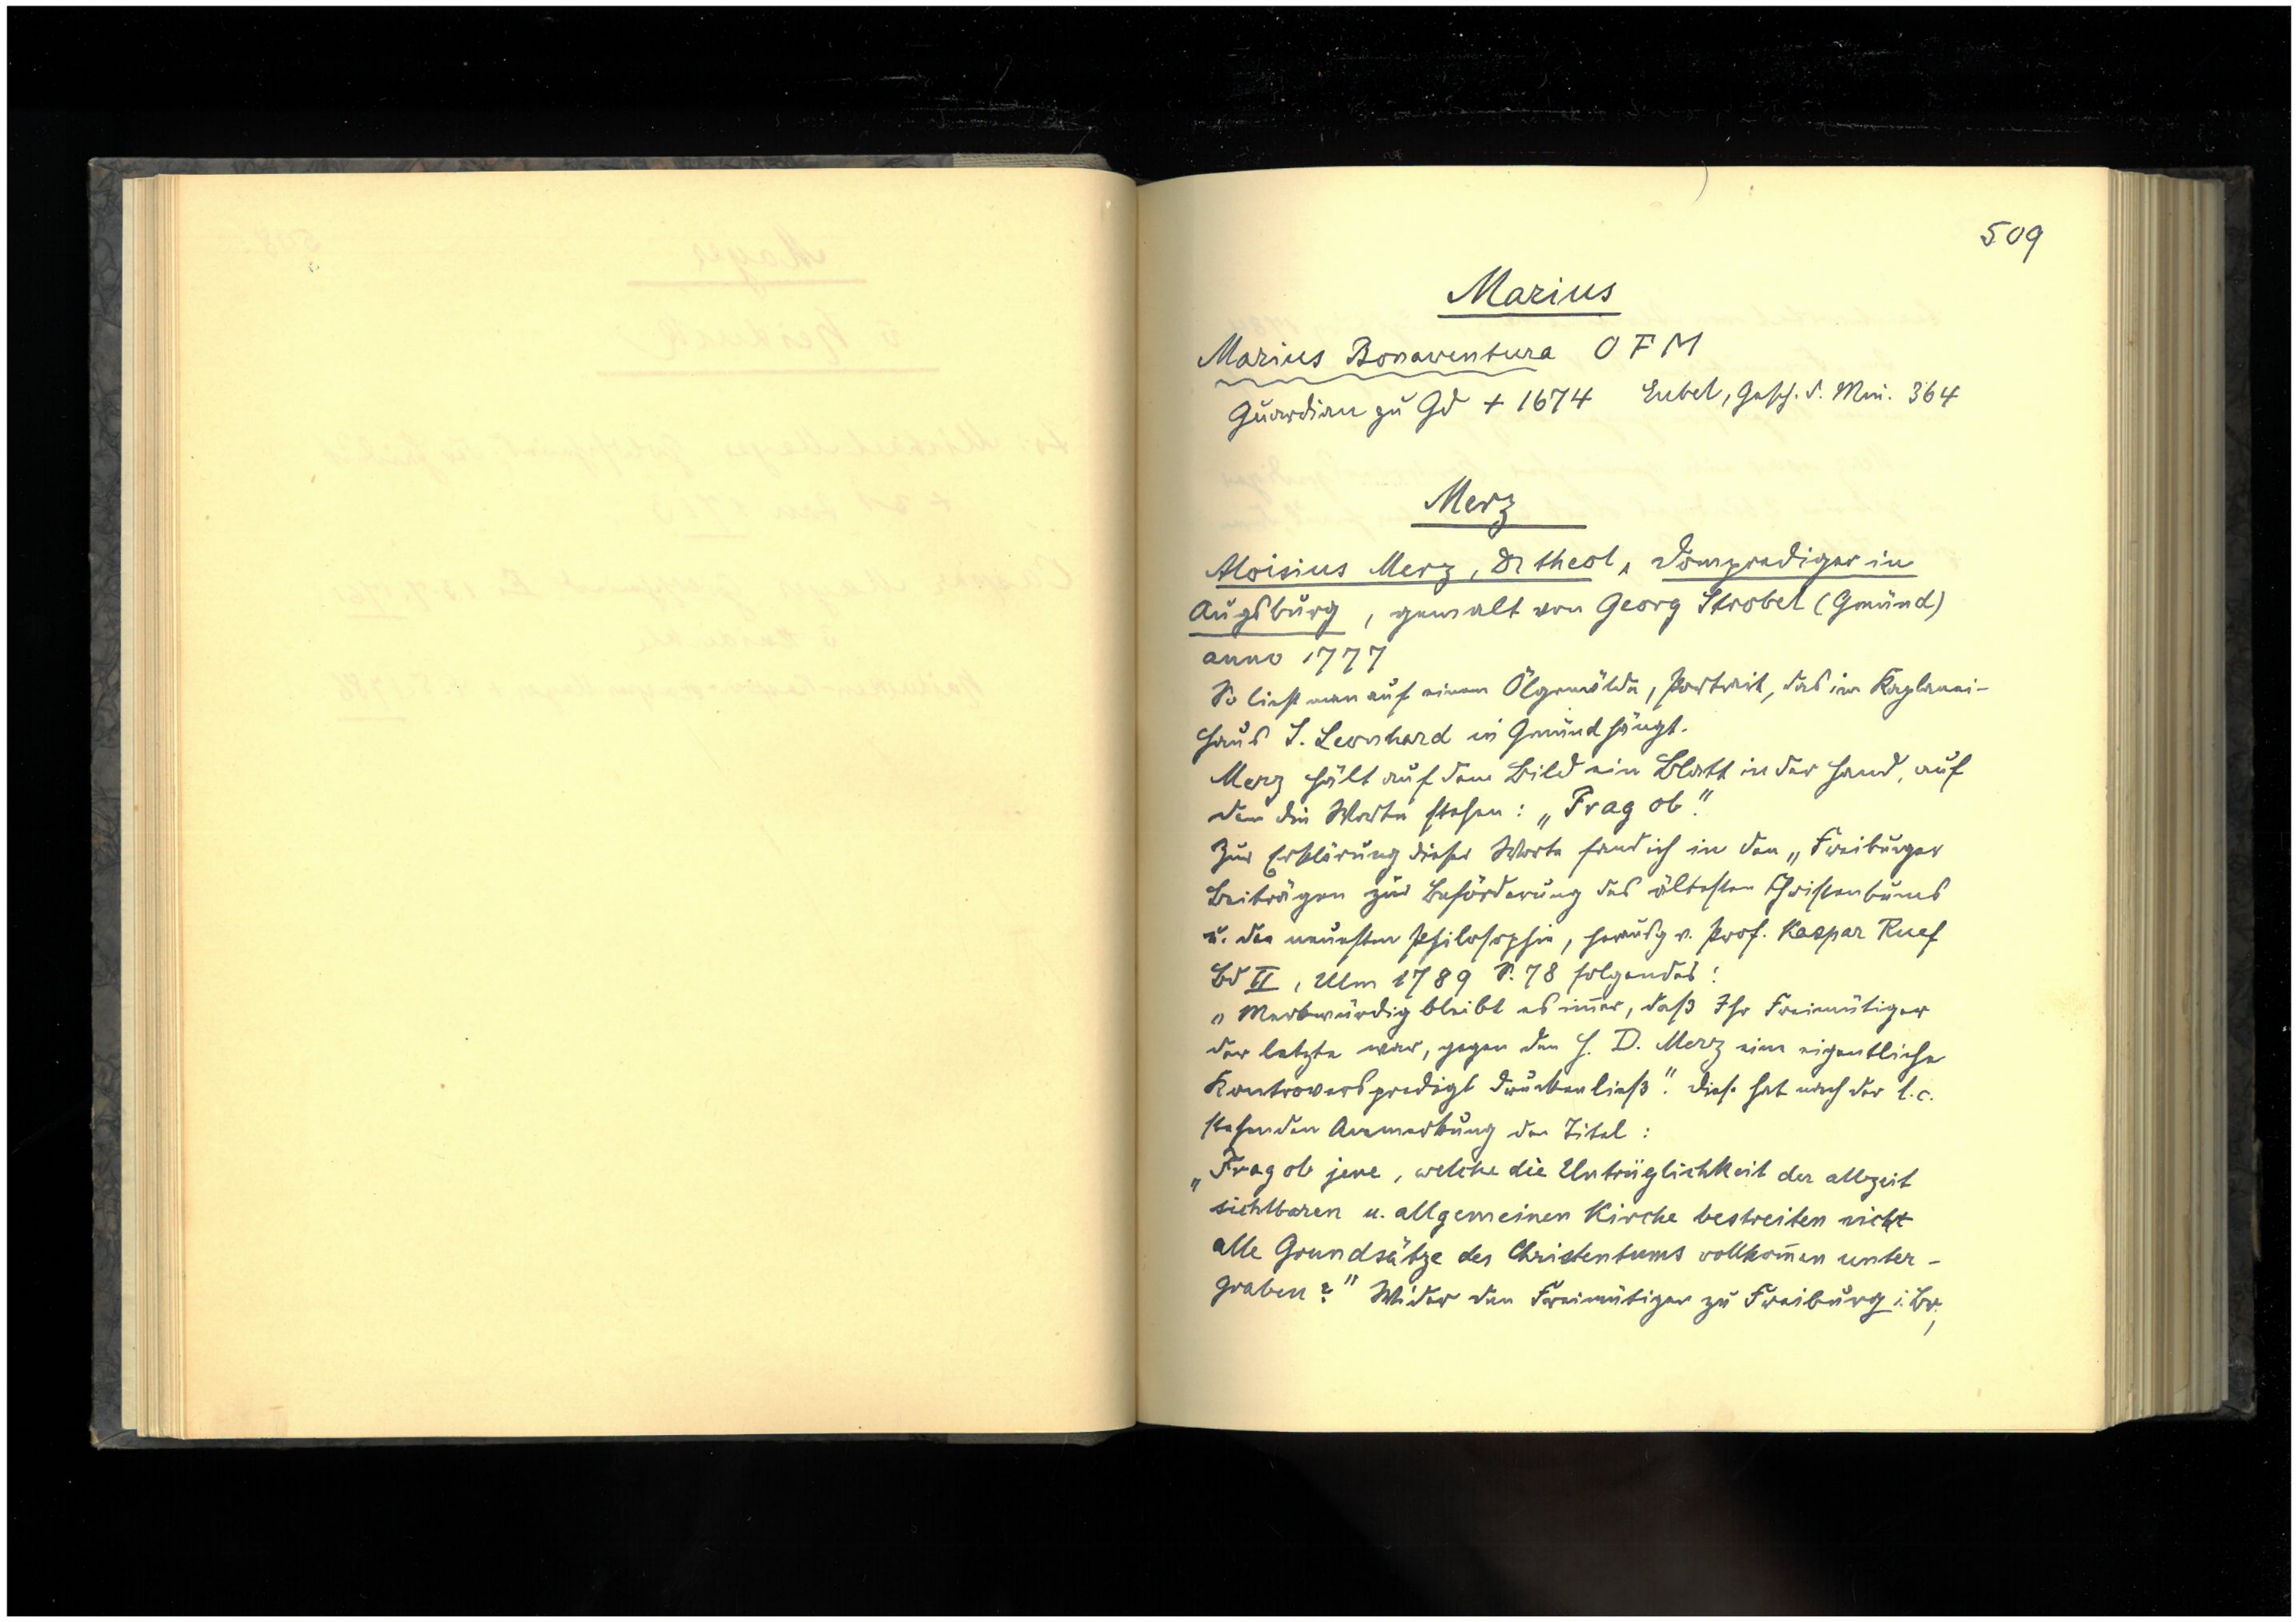 509
Marius
Marius Bonaventura OFM
Guardian zu Gd + 1674 Eubel, Gesch. d. Min. 364
Merz
Aloisius Merz, Dr theol, Domprediger in
Augsburg, gemalt von Georg Strobel (Gmünd)
anno 1777
So liest man auf einem Ölgemälde, Portrait, das im Kaplanei-
haus S. Leonhard in Gmünd hängt.
Merz hält auf dem Bild ein Blatt in der Hand, auf
dem die Worte stehen: „Frag ob".
Zur Erklärung dieser Worte fand ich in den „Freiburger
Beiträgen zur Beförderung des ältesten Christentums
u. der neuesten Philosophie, herausg v. Prof. Kaspar Ruef
Bd II, Ulm 1789 S. 78 folgendes:
„Merkwürdig bleibt es im̅er, daß Ihr Freimütiger
der letzte war, gegen den H. D. Merz eine eigentliche
Kontroverspredigt drucken ließ". Diese hat nach der l.c.
stehenden Anmerkung den Titel:
„Frag ob jene, welche die Untrüglichkeit der allzeit
sichtbaren u. allgemeinen Kirche bestreiten nicht
alle Grundsätze des Christentums vollkom̅en unter-
graben?" Wider den Freimütigen zu Freiburg i. Br,